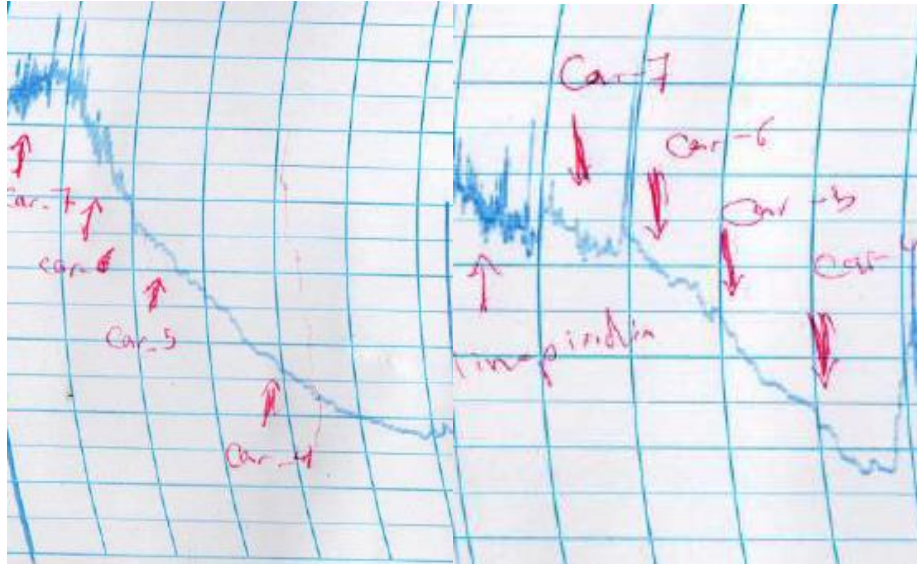 Car-7
Car-6
Car-5
Car-4
Car-7
Car-6
Car-5
Car-4